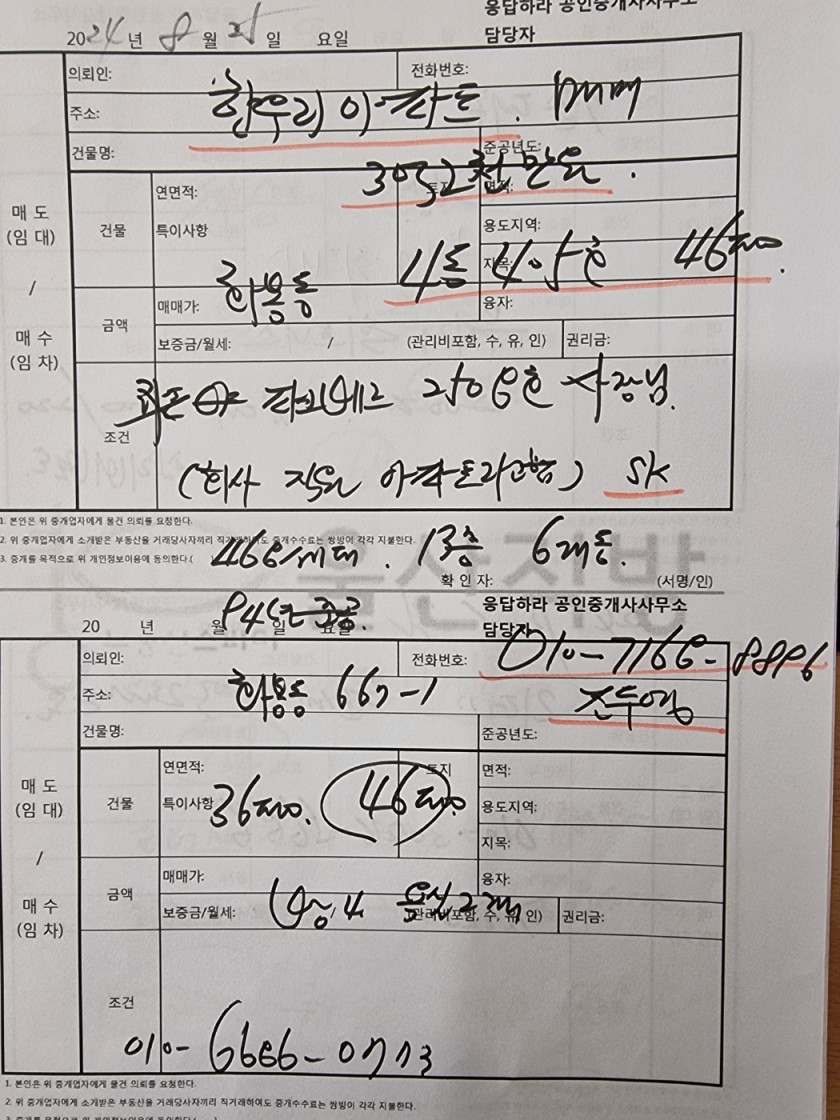 응답하라 공인중개사사무소
2024년 8월 25일 요일 담당자
의뢰인: 전화번호:
주소: 한우리 아파트. 매매
건물명: 준공년도:
3억2천만원.
매 도 (임 대) / 매 수 (임 차)
건물 연면적: 토지 면적:
특이사항 용도지역:
지목:
화봉동 4동 405호 46평.
금액 매매가: 융자:
보증금/월세: / (관리비포함, 수, 유, 인) 권리금:
조건
사장님.
(회사 직원 아파트라고함) SK
1. 본인은 위 중개업자에게 물건 의뢰를 요청한다.
2. 위 중개업자에게 소개받은 부동산을 거래당사자끼리 직거래하여도 중개수수료는 쌍방이 각각 지불한다.
3. 중개를 목적으로 위 개인정보이용에 동의한다.(
468세대. 13층 6개동.
확 인 자: (서명/인)
94년 준공.
응답하라 공인중개사사무소
20 년 월 일 요일 담당자
의뢰인: 전화번호: 010-7166-8896
주소: 화봉동 667-1
건물명: 준공년도:
매 도 (임 대) / 매 수 (임 차)
건물 연면적: 토지 면적:
특이사항 36평. 46평. 용도지역:
지목:
금액 매매가: 융자:
보증금/월세: / (관리비포함, 수, 유, 인) 권리금:
방4 욕실2개
조건
010-6666-0773
1. 본인은 위 중개업자에게 물건 의뢰를 요청한다.
2. 위 중개업자에게 소개받은 부동산을 거래당사자끼리 직거래하여도 중개수수료는 쌍방이 각각 지불한다.